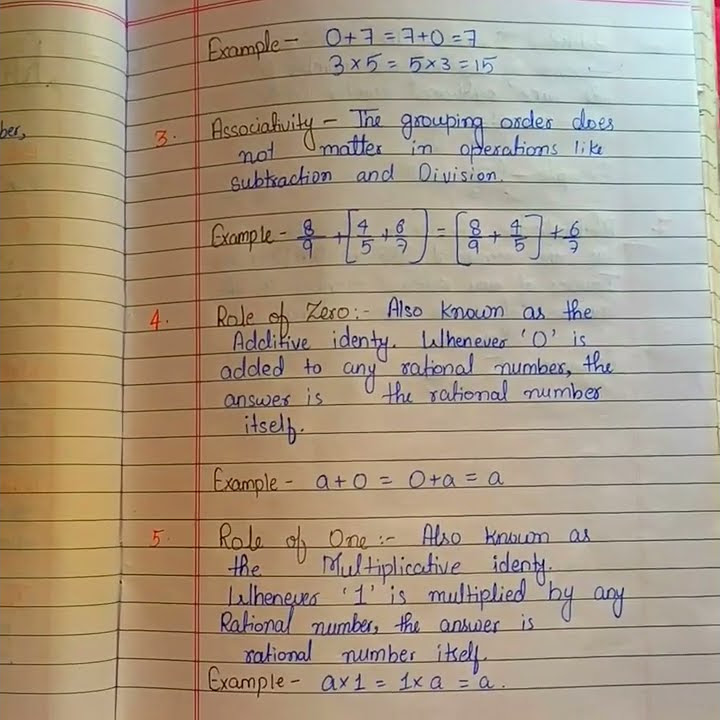 ber,
Example - 0+7 = 7+0 = 7
3×5 = 5×3 = 15
3. Associativity - The grouping order does
not matter in operations like
subtraction and Division.
Example - 8/9 + [4/5 + 6/7] = [8/9 + 4/5] + 6/7
4. Role of Zero :- Also known as the
Additive identy. Whenever '0' is
added to any rational number, the
answer is the rational number
itself.
Example - a+0 = 0+a = a
5. Role of One :- Also known as
the Multiplicative identy.
Whenever '1' is multiplied by any
Rational number, the answer is
rational number itself.
Example - a×1 = 1×a = a.